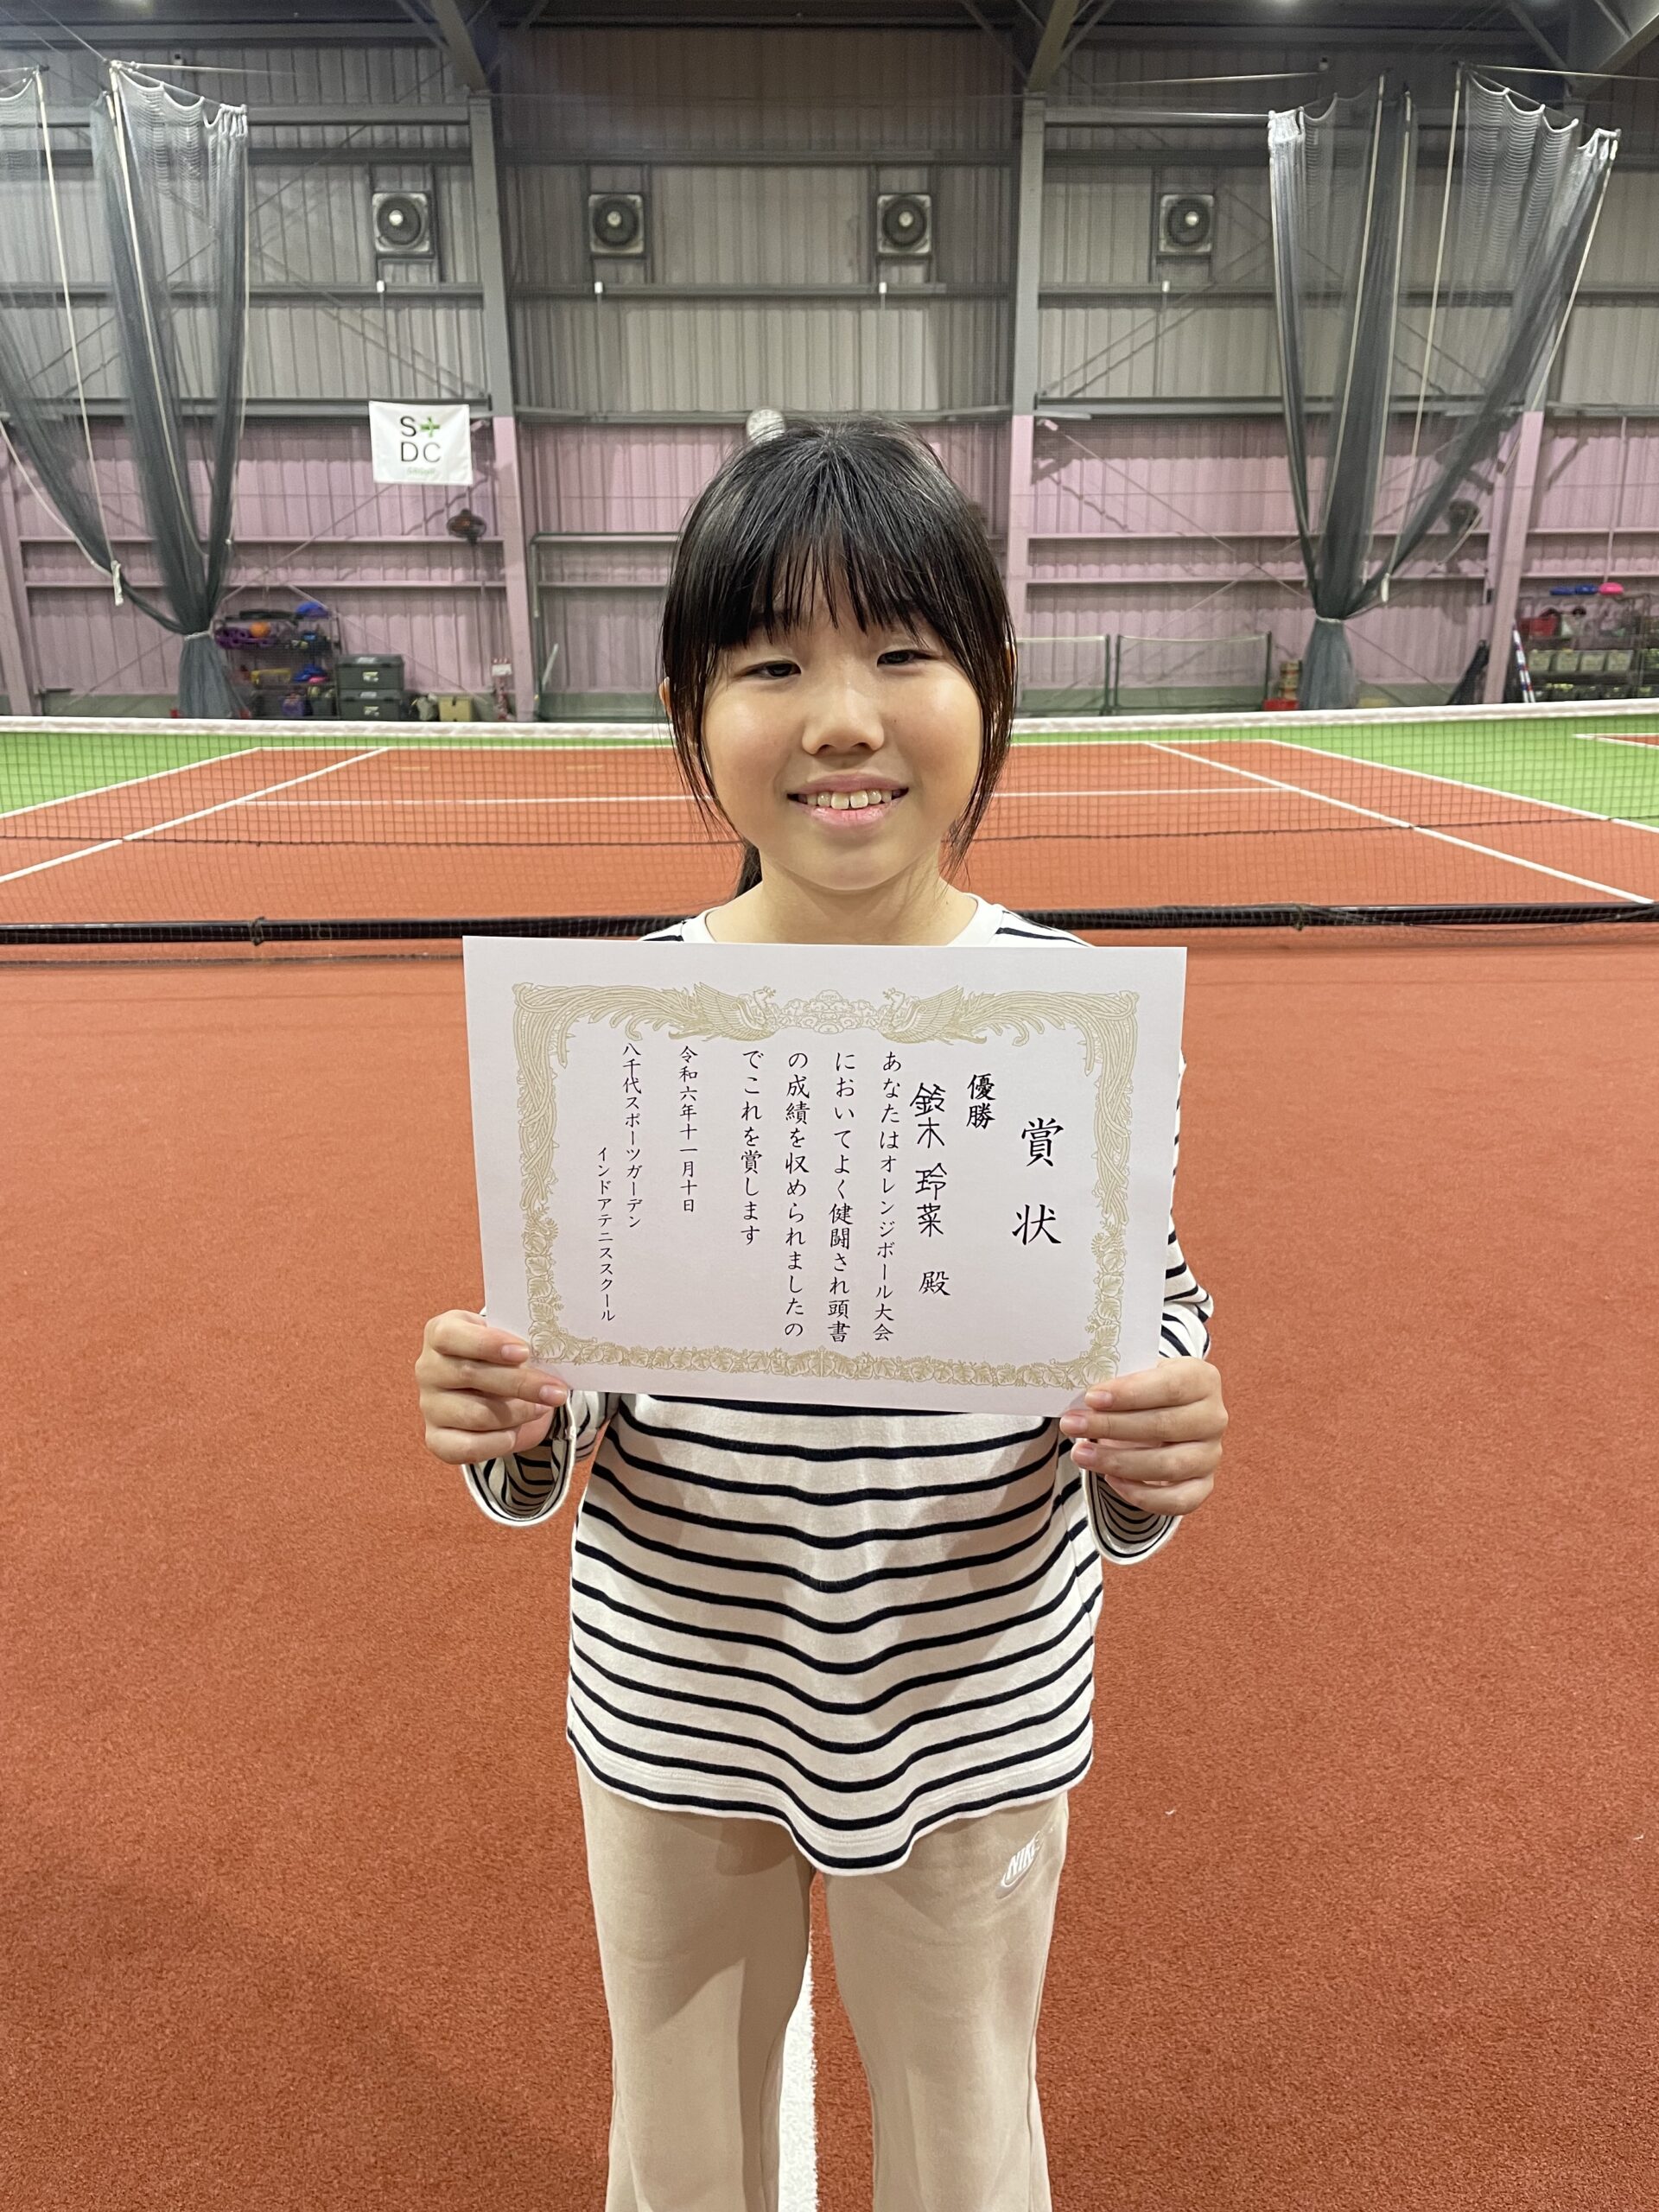 賞状
優勝
鈴木 玲菜 殿
あなたはオレンジボール大会
において よく健闘され頭書
の成績を収められましたの
でこれを賞します
令和六年十一月十日
八千代スポーツガーデン
インドアテニススクール
S+
DC
NIKE